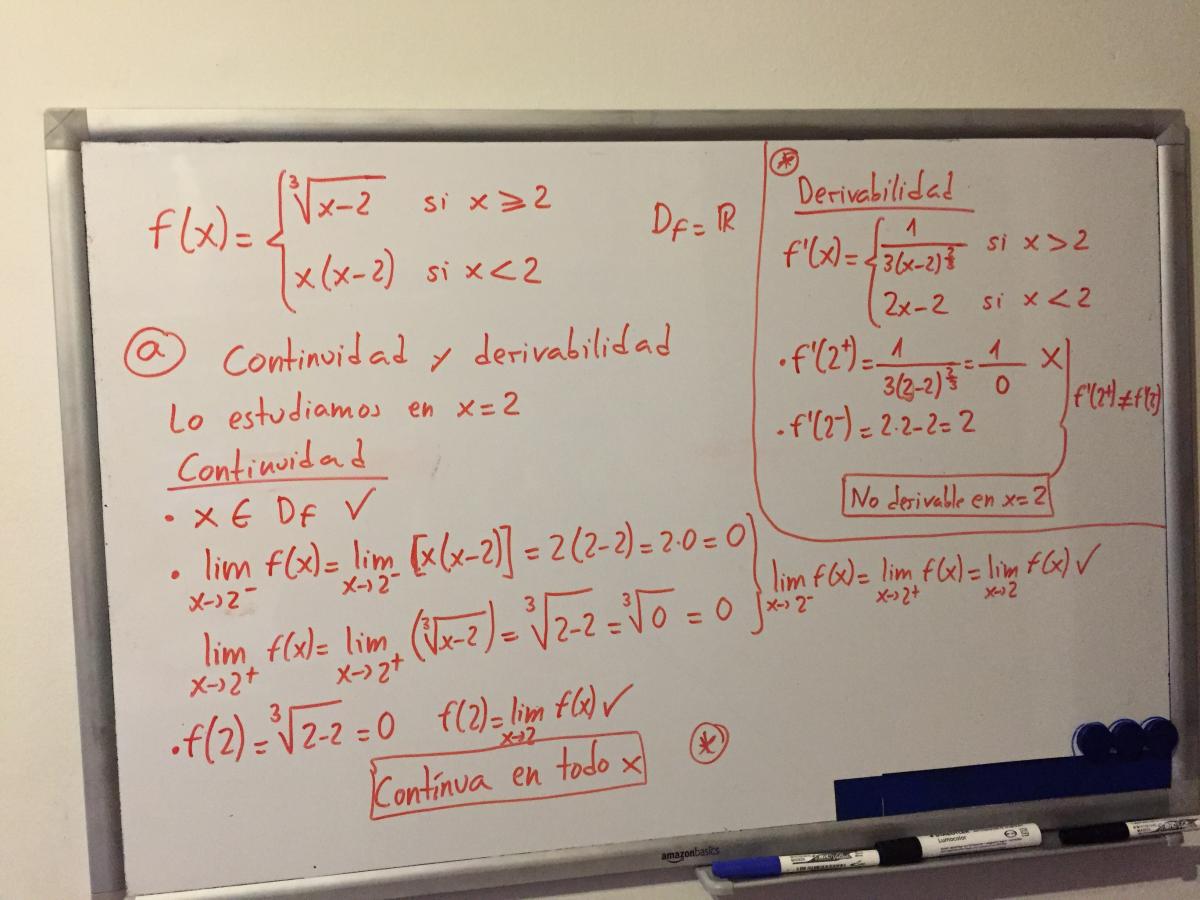 f(x) = { ∛(x-2) si x ⩾ 2
x(x-2) si x < 2
Df = ℝ
ⓐ Continuidad y derivabilidad
Lo estudiamos en x=2
Continuidad
· x ∈ Df ✓
· lim x→2⁻ f(x) = lim x→2⁻ [x(x-2)] = 2(2-2) = 2·0 = 0
lim x→2⁺ f(x) = lim x→2⁺ (∛(x-2)) = ∛(2-2) = ∛0 = 0
} lim x→2⁻ f(x) = lim x→2⁺ f(x) = lim x→2 f(x) ✓
· f(2) = ∛(2-2) = 0 f(2) = lim x→2 f(x) ✓
Contínua en todo x ⊛
⊛
Derivabilidad
f'(x) = { 1/(3(x-2)^(2/3)) si x > 2
2x-2 si x < 2
· f'(2⁺) = 1/(3(2-2)^(2/3)) = 1/0 X
· f'(2⁻) = 2·2-2 = 2
} f'(2⁺) ≠ f'(2⁻)
No derivable en x=2
amazonbasics
Lumocolor